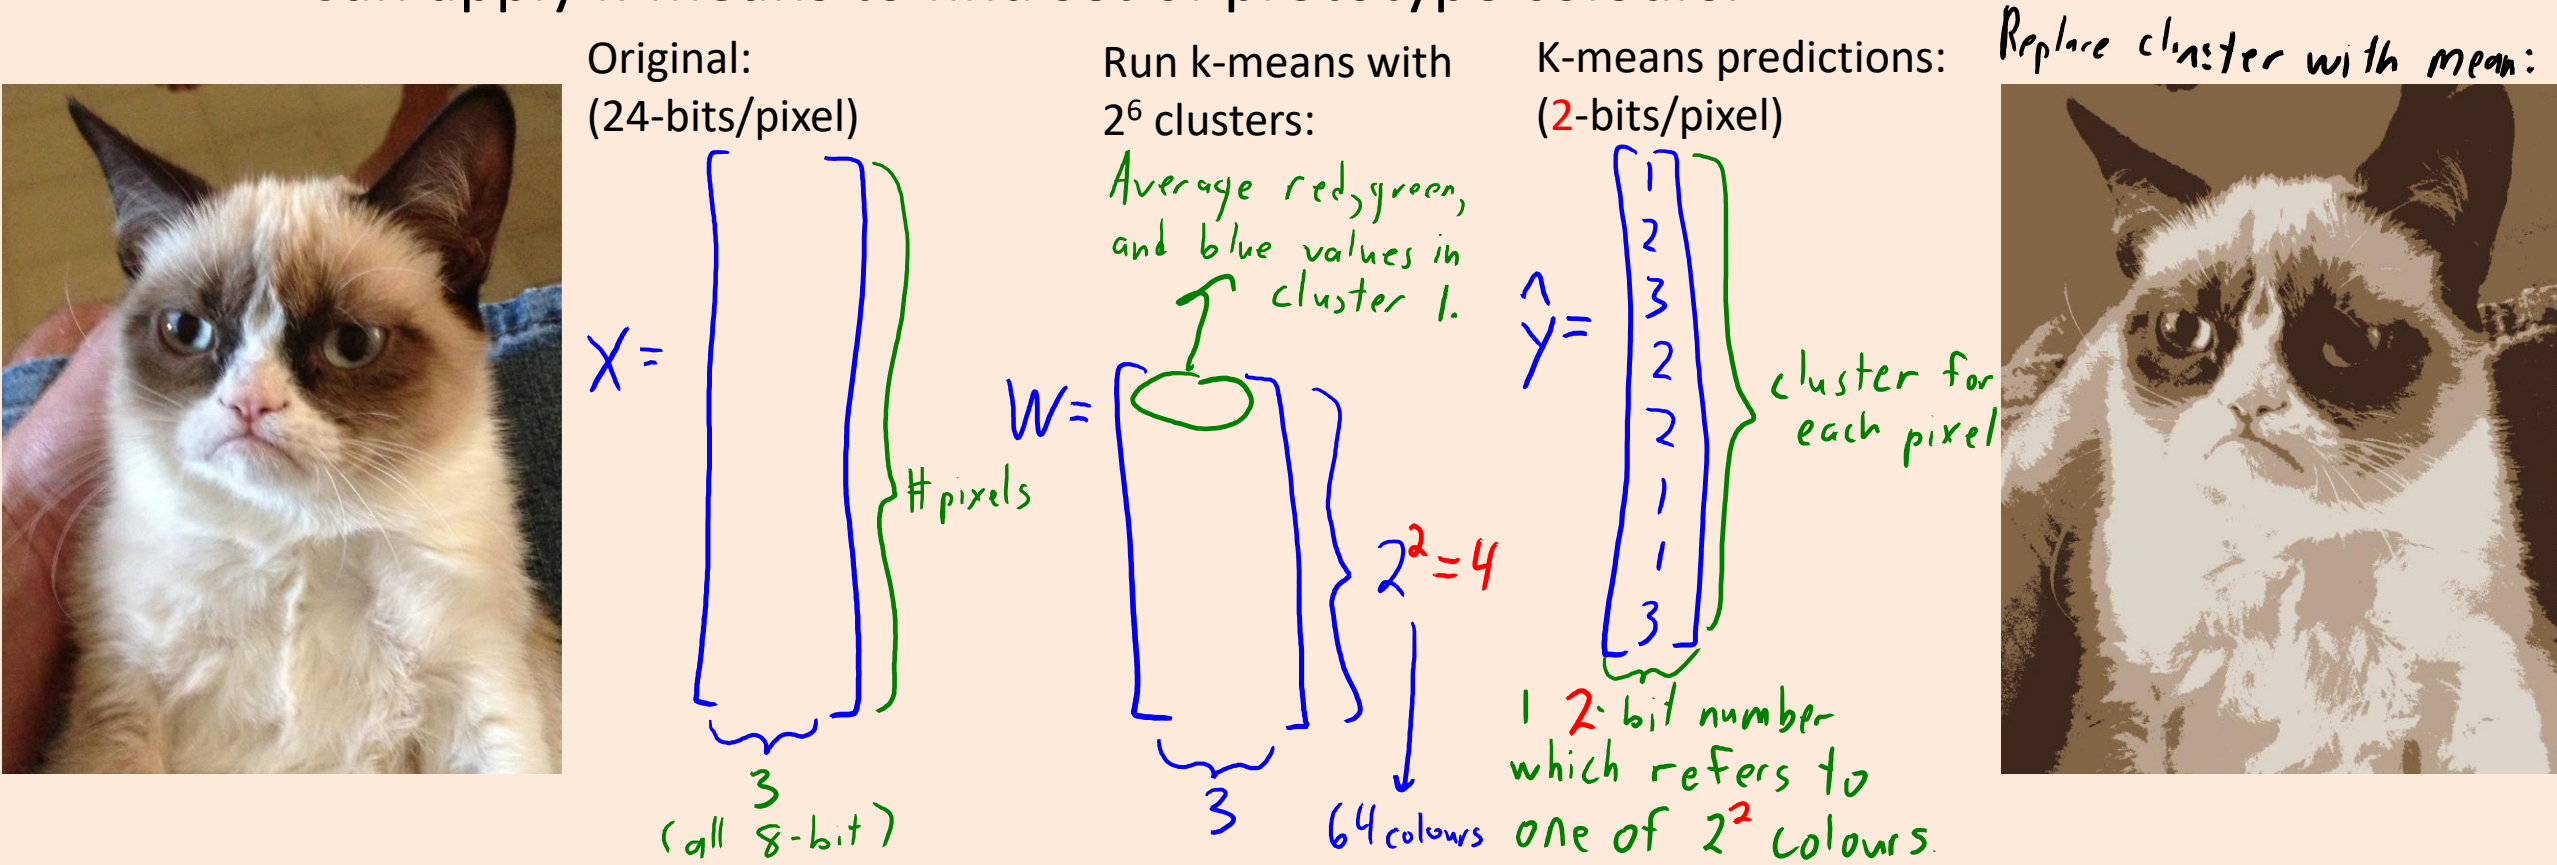 Original:
(24-bits/pixel)
X =
# pixels
3
(all 8-bit)
Run k-means with
2⁶ clusters:
Average red, green,
and blue values in
cluster 1.
W =
2² = 4
3
64 colours
K-means predictions:
(2-bits/pixel)
ŷ =
1
2
3
2
2
1
1
3
cluster for
each pixel
1 2-bit number
which refers to
one of 2² colours.
Replace cluster with mean: